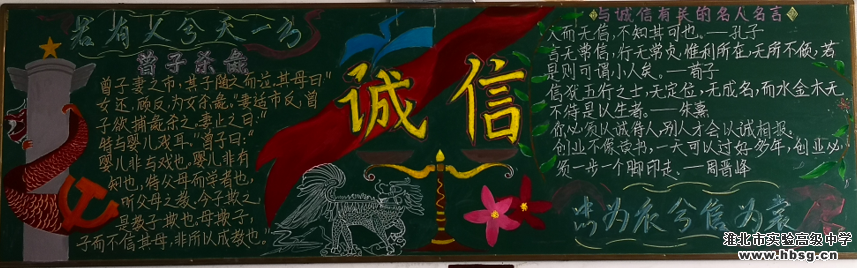 若有人兮天一方
曾子杀彘
曾子妻之市，其子随之而泣，其母曰：“
女还，顾反，为女杀彘。”妻适市反，曾
子欲捕彘杀之，妻止之曰：“
特与婴儿戏耳。”曾子曰：“
婴儿非与戏也。婴儿非有
知也，待父母而学者也，
听父母之教，今子欺之，
是教子欺也。母欺子，
子而不信其母，非所以成教也。”
诚信
与诚信有关的名人名言
人而无信，不知其可也。—孔子
言无常信，行无常贞，惟利所在，无所不倾，若
是则可谓小人矣。—荀子
信犹五行之土，无定位，无成名，而水金木无
不待是以生者。—朱熹
你必须以诚待人，别人才会以诚相报。
创业不像读书，一天可以过好多年，创业必
须一步一个脚印走。—周晋峰
忠为衣兮信为裳
淮北市实验高级中学
www.hbsg.cn